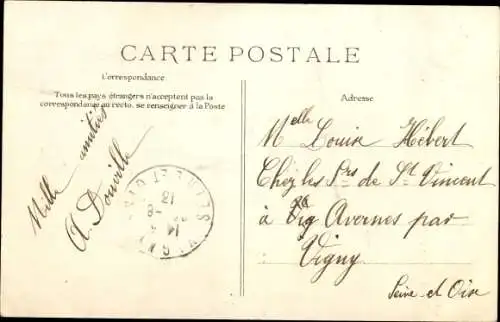 CARTE POSTALE
Correspondance
Tous les pays étrangers n'acceptent pas la
correspondance au recto, se renseigner à la Poste
Adresse
Mille amitiés
A. Douville
Melle Louise Hébert
Chez les Srs de St Vincent
à Avernes par
Vigny
Seine et Oise